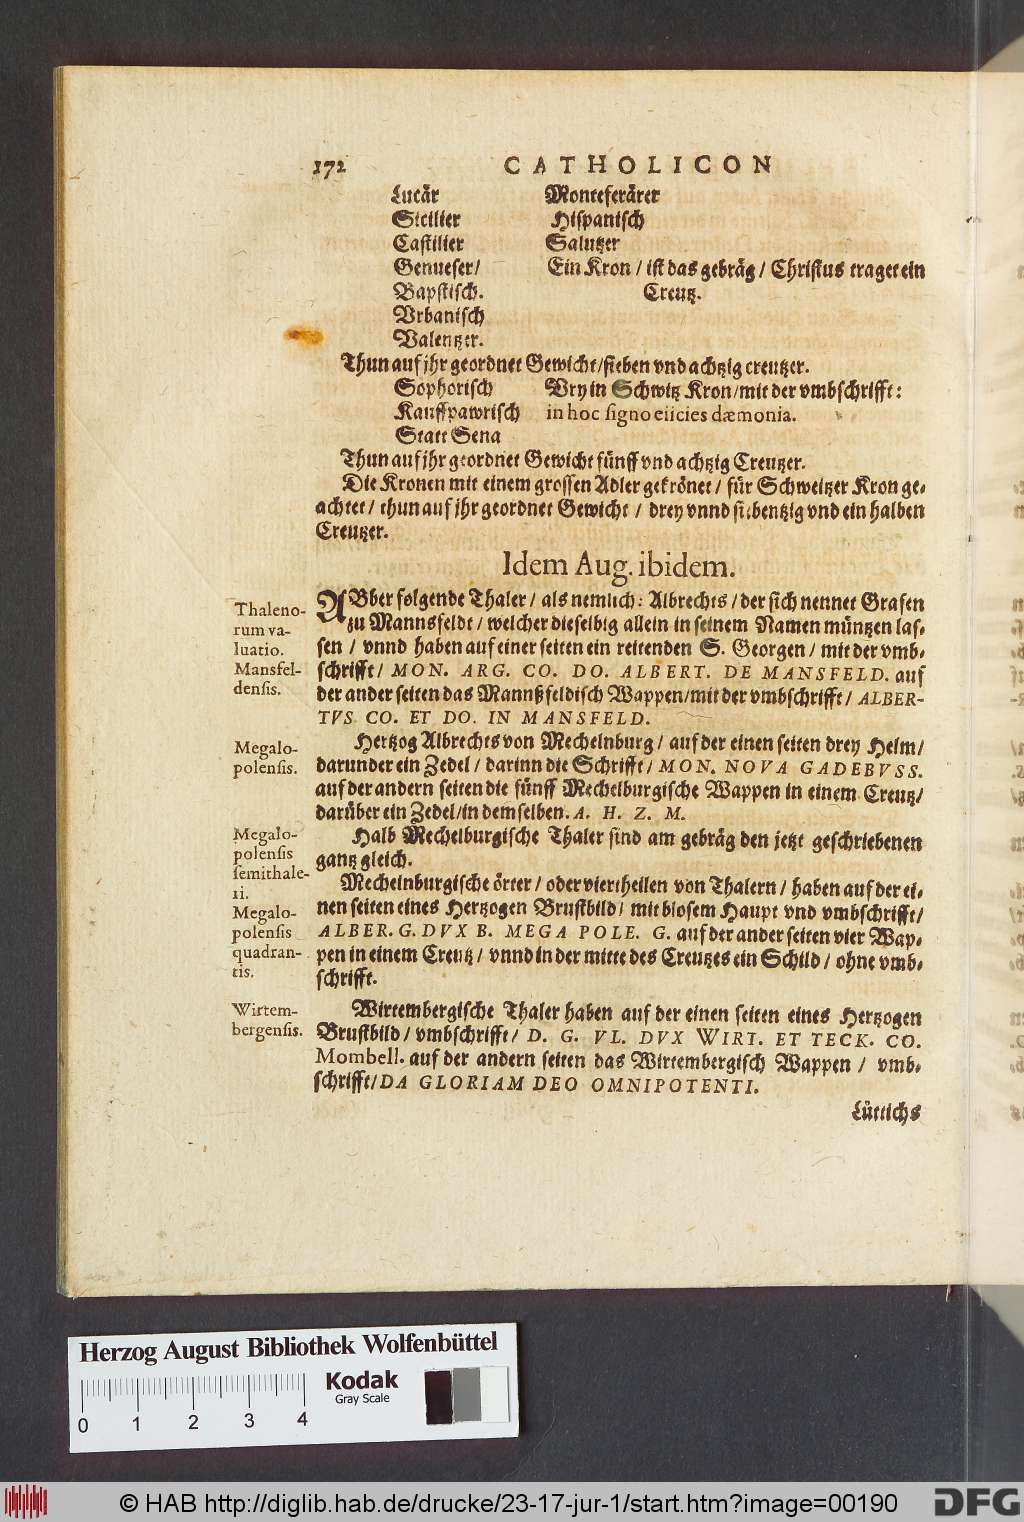 172 CATHOLICON
Lucär Monteferärer
Sicilier Hispanisch
Castilier Salutzer
Genueser/ Ein Kron / ist das gebräg / Christus traget ein
Bapstisch. Creutz.
Vrbanisch
Valentzer.
Thun auf jhr geordnet Gewicht/sieben vnd achtzig creutzer.
Sophorisch Vry in Schwitz Kron/mit der vmbschrifft:
Kauffpawrisch in hoc signo eiicies dæmonia.
Statt Sena
Thun auf jhr geordnet Gewicht fünff vnd achtzig Creutzer.
Die Kronen mit einem grossen Adler gekrönet / für Schweitzer Kron ge-
achtet / thun auf jhr geordnet Gewicht / drey vnnd siebentzig vnd ein halben
Creutzer.
Idem Aug. ibidem.
Thaleno-
rum va-
luatio.
Mansfel-
densis.
ABber folgende Thaler / als nemlich: Albrechts / der sich nennet Grafen
zu Mannsfeldt / welcher dieselbig allein in seinem Namen müntzen las-
sen / vnnd haben auf einer seiten ein reitenden S. Georgen / mit der vmb-
schrifft/ MON. ARG. CO. DO. ALBERT. DE MANSFELD. auf
der ander seiten das Mannßfeldisch Wappen/mit der vmbschrifft/ ALBER-
TVS CO. ET DO. IN MANSFELD.
Megalo-
polensis.
Hertzog Albrechts von Mechelnburg / auf der einen seiten drey Helm/
darunder ein Zedel / darinn die Schrifft/ MON. NOVA GADEBVSS.
auf der andern seiten die fünff Mechelburgische Wappen in einem Creutz/
darüber ein Zedel/in demselben. A. H. Z. M.
Megalo-
polensis
semithale-
ri.
Halb Mechelburgische Thaler sind am gebräg den jetzt geschriebenen
gantz gleich.
Megalo-
polensis
quadran-
tis.
Mechelnburgische örter / oder viertheilen von Thalern / haben auf der ei-
nen seiten eines Hertzogen Brustbild/ mit blosem Haupt vnd vmbschrifft/
ALBER. G. DVX B. MEGA POLE. G. auf der ander seiten vier Wap-
pen in einem Creutz / vnnd in der mitte des Creutzes ein Schild / ohne vmb-
schrifft.
Wirtem-
bergensis.
Wirtembergische Thaler haben auf der einen seiten eines Hertzogen
Brustbild/ vmbschrifft/ D. G. VL. DVX WIRT. ET TECK. CO.
Mombell. auf der andern seiten das Wirtembergisch Wappen / vmb-
schrifft/DA GLORIAM DEO OMNIPOTENTI.
Lüttichs
Herzog August Bibliothek Wolfenbüttel
0 1 2 3 4
Kodak
Gray Scale
© HAB http://diglib.hab.de/drucke/23-17-jur-1/start.htm?image=00190
DFG